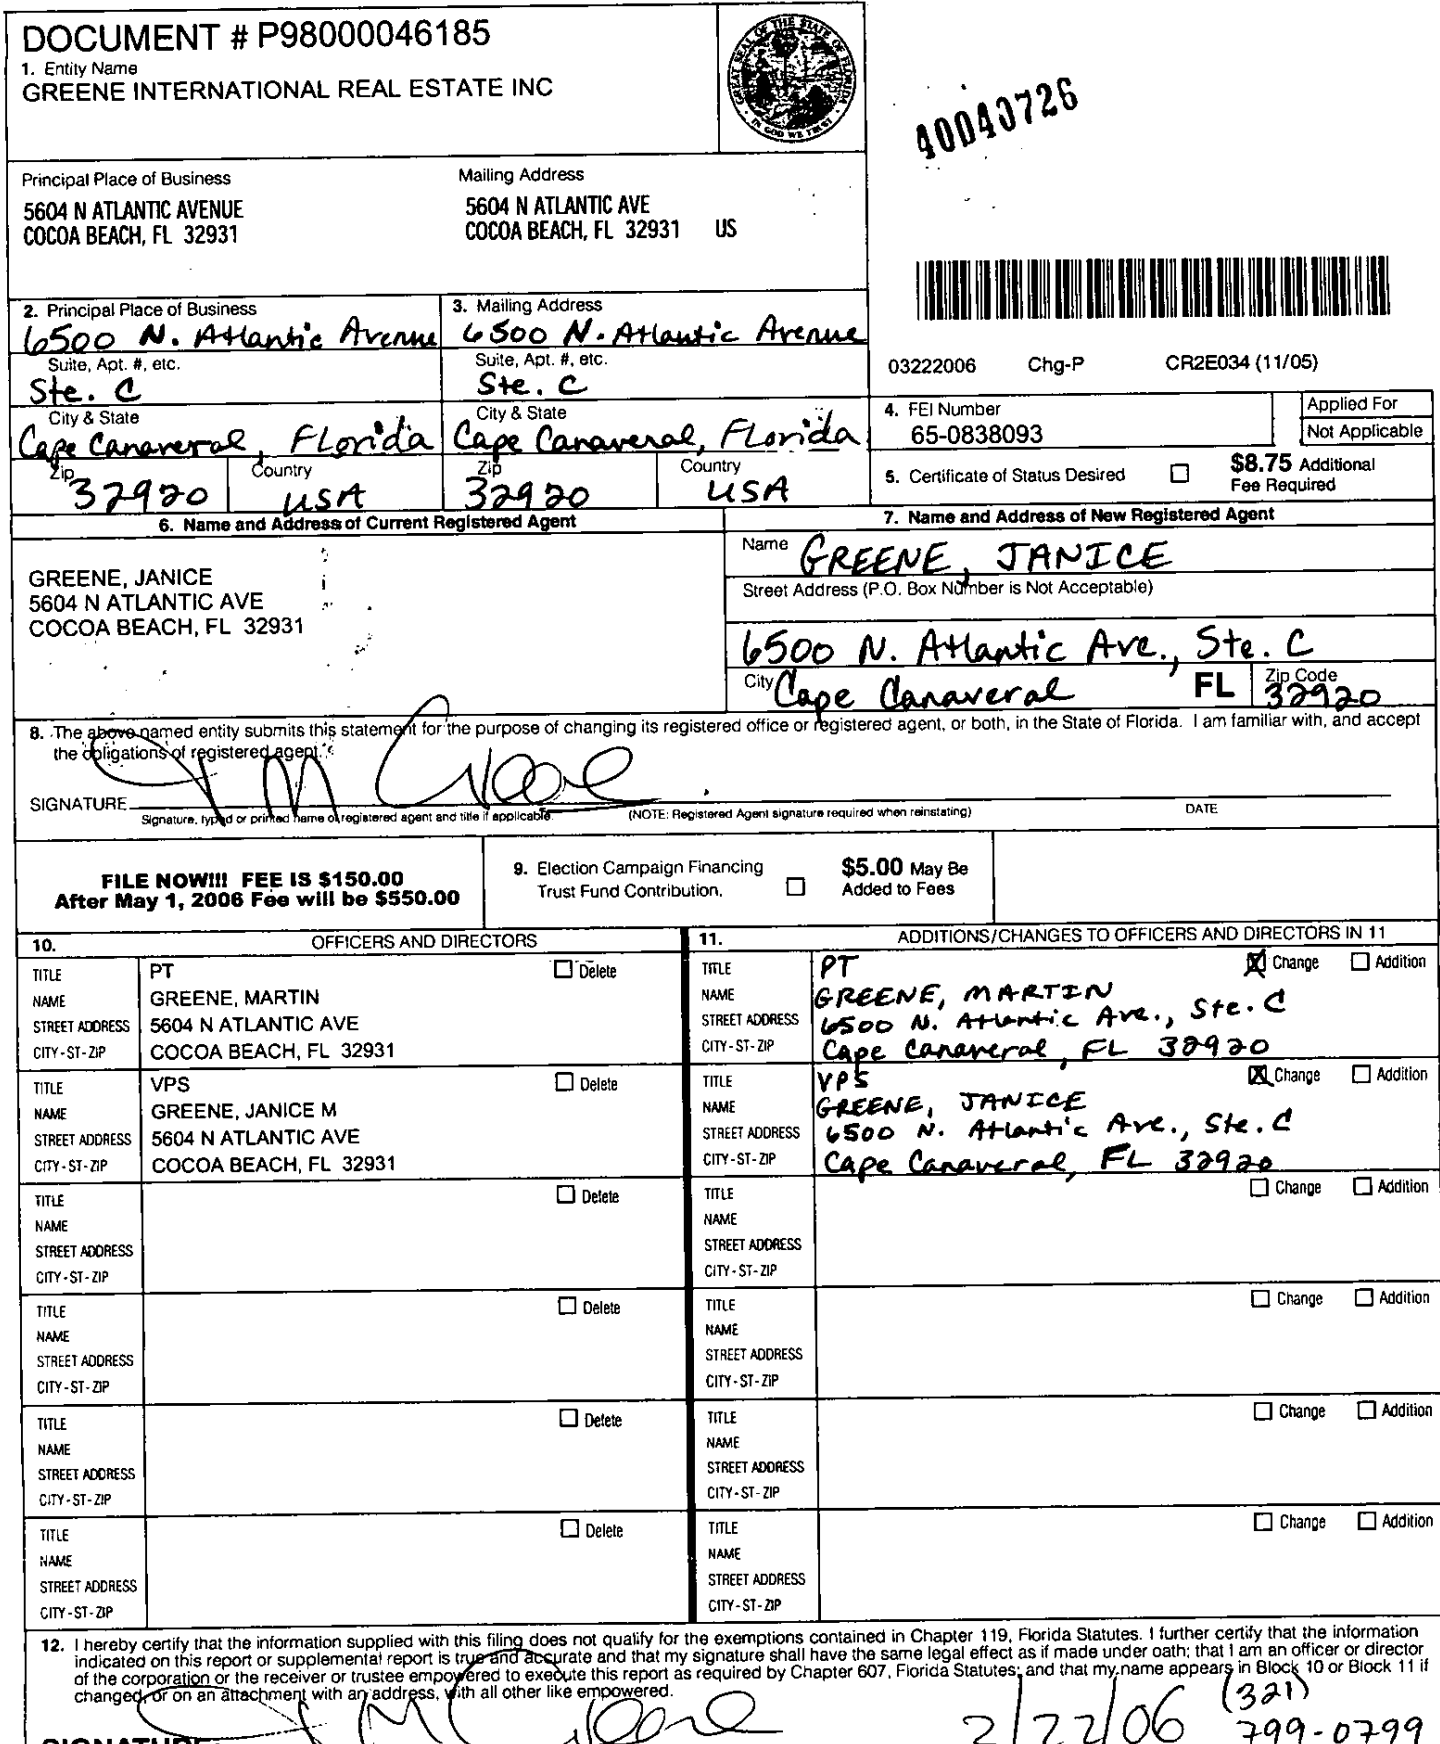 DOCUMENT # P98000046185
1. Entity Name
GREENE INTERNATIONAL REAL ESTATE INC
GREAT SEAL OF THE STATE OF FLORIDA
IN GOD WE TRUST
40040726
Principal Place of Business
5604 N ATLANTIC AVENUE
COCOA BEACH, FL 32931
Mailing Address
5604 N ATLANTIC AVE
COCOA BEACH, FL 32931 US
2. Principal Place of Business
6500 N. Atlantic Avenue
Suite, Apt. #, etc.
Ste. C
City & State
Cape Canaveral, Florida
Zip
32920
Country
USA
3. Mailing Address
6500 N. Atlantic Avenue
Suite, Apt. #, etc.
Ste. C
City & State
Cape Canaveral, Florida
Zip
32920
Country
USA
03222006 Chg-P CR2E034 (11/05)
4. FEI Number
65-0838093
Applied For
Not Applicable
5. Certificate of Status Desired
$8.75 Additional
Fee Required
6. Name and Address of Current Registered Agent
GREENE, JANICE
5604 N ATLANTIC AVE
COCOA BEACH, FL 32931
7. Name and Address of New Registered Agent
Name GREENE, JANICE
Street Address (P.O. Box Number is Not Acceptable)
6500 N. Atlantic Ave., Ste. C
City Cape Canaveral FL Zip Code 32920
8. The above named entity submits this statement for the purpose of changing its registered office or registered agent, or both, in the State of Florida. I am familiar with, and accept
the obligations of registered agent.
SIGNATURE
Signature, typed or printed name of registered agent and title if applicable. (NOTE: Registered Agent signature required when reinstating) DATE
FILE NOW!!! FEE IS $150.00
After May 1, 2006 Fee will be $550.00
9. Election Campaign Financing
Trust Fund Contribution.
$5.00 May Be
Added to Fees
10. OFFICERS AND DIRECTORS
11. ADDITIONS/CHANGES TO OFFICERS AND DIRECTORS IN 11
TITLE PT Delete
NAME GREENE, MARTIN
STREET ADDRESS 5604 N ATLANTIC AVE
CITY-ST-ZIP COCOA BEACH, FL 32931
TITLE PT Change Addition
NAME GREENE, MARTIN
STREET ADDRESS 6500 N. Atlantic Ave., Ste. C
CITY-ST-ZIP Cape Canaveral, FL 32920
TITLE VPS Delete
NAME GREENE, JANICE M
STREET ADDRESS 5604 N ATLANTIC AVE
CITY-ST-ZIP COCOA BEACH, FL 32931
TITLE VPS Change Addition
NAME GREENE, JANICE
STREET ADDRESS 6500 N. Atlantic Ave., Ste. C
CITY-ST-ZIP Cape Canaveral, FL 32920
TITLE Delete
NAME
STREET ADDRESS
CITY-ST-ZIP
TITLE Change Addition
NAME
STREET ADDRESS
CITY-ST-ZIP
TITLE Delete
NAME
STREET ADDRESS
CITY-ST-ZIP
TITLE Change Addition
NAME
STREET ADDRESS
CITY-ST-ZIP
TITLE Delete
NAME
STREET ADDRESS
CITY-ST-ZIP
TITLE Change Addition
NAME
STREET ADDRESS
CITY-ST-ZIP
TITLE Delete
NAME
STREET ADDRESS
CITY-ST-ZIP
TITLE Change Addition
NAME
STREET ADDRESS
CITY-ST-ZIP
12. I hereby certify that the information supplied with this filing does not qualify for the exemptions contained in Chapter 119, Florida Statutes. I further certify that the information
indicated on this report or supplemental report is true and accurate and that my signature shall have the same legal effect as if made under oath; that I am an officer or director
of the corporation or the receiver or trustee empowered to execute this report as required by Chapter 607, Florida Statutes; and that my name appears in Block 10 or Block 11 if
changed, or on an attachment with an address, with all other like empowered.
SIGNATURE: 2/22/06 (321)
799-0799